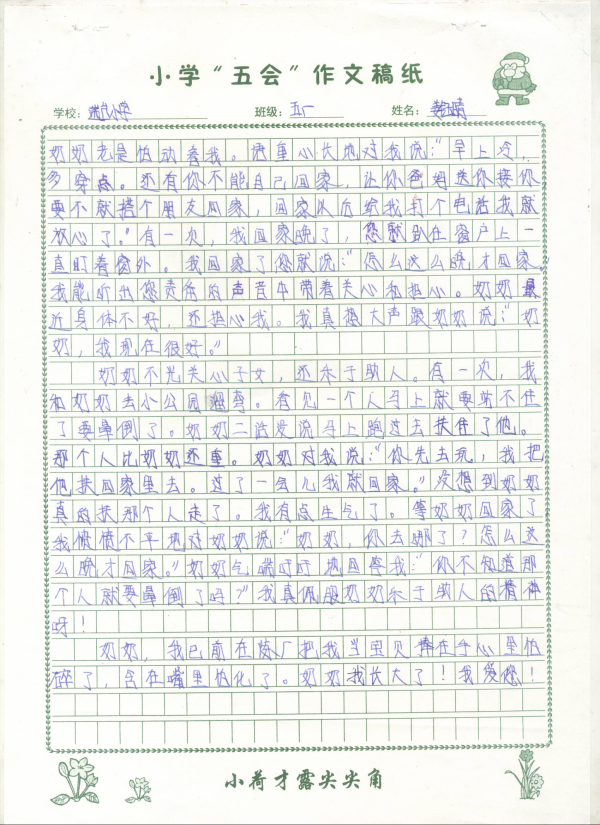 小学“五会”作文稿纸
学校： 小学 班级：五 姓名：
奶奶老是怕动着我。语重心长地对我说：“早上冷，
多穿点。还有你不能自己回家，让你爸妈送你接你
要不就搭个朋友回家，回家以后给我打个电话我就
放心了。”有一次，我回家晚了，您就趴在窗户上一
直盯着窗外。我回家了您就说：“怎么这么晚才回家。
我能听出您责怪的声音中带着关心和热心。奶奶最
近身体不好，还热心我。我真想大声跟奶奶说：“奶
奶，我现在很好。”
奶奶不光关心子女，还乐于助人。有一次，我
和奶奶去小公园溜弯。看见一个人马上就要站不住
了要晕倒了。奶奶二话没说马上跑过去扶住了他。
那个人比奶奶还重。奶奶对我说：“你先去玩，我把
他扶回家里去。过了一会儿我就回家。”没想到奶奶
真的扶那个人走了。我有点生气了。等奶奶回家了
我愤愤不平地对奶奶说：“奶奶，你去哪了？怎么这
么晚才回家。”奶奶气喘吁吁地回答我：“你不知道那
个人就要晕倒了吗？”我真佩服奶奶乐于助人的精神
呀！
奶奶，我已前在炼厂把我当宝贝捧在手心里怕
碎了，含在嘴里怕化了。奶奶我长大了！我爱您！
小荷才露尖尖角